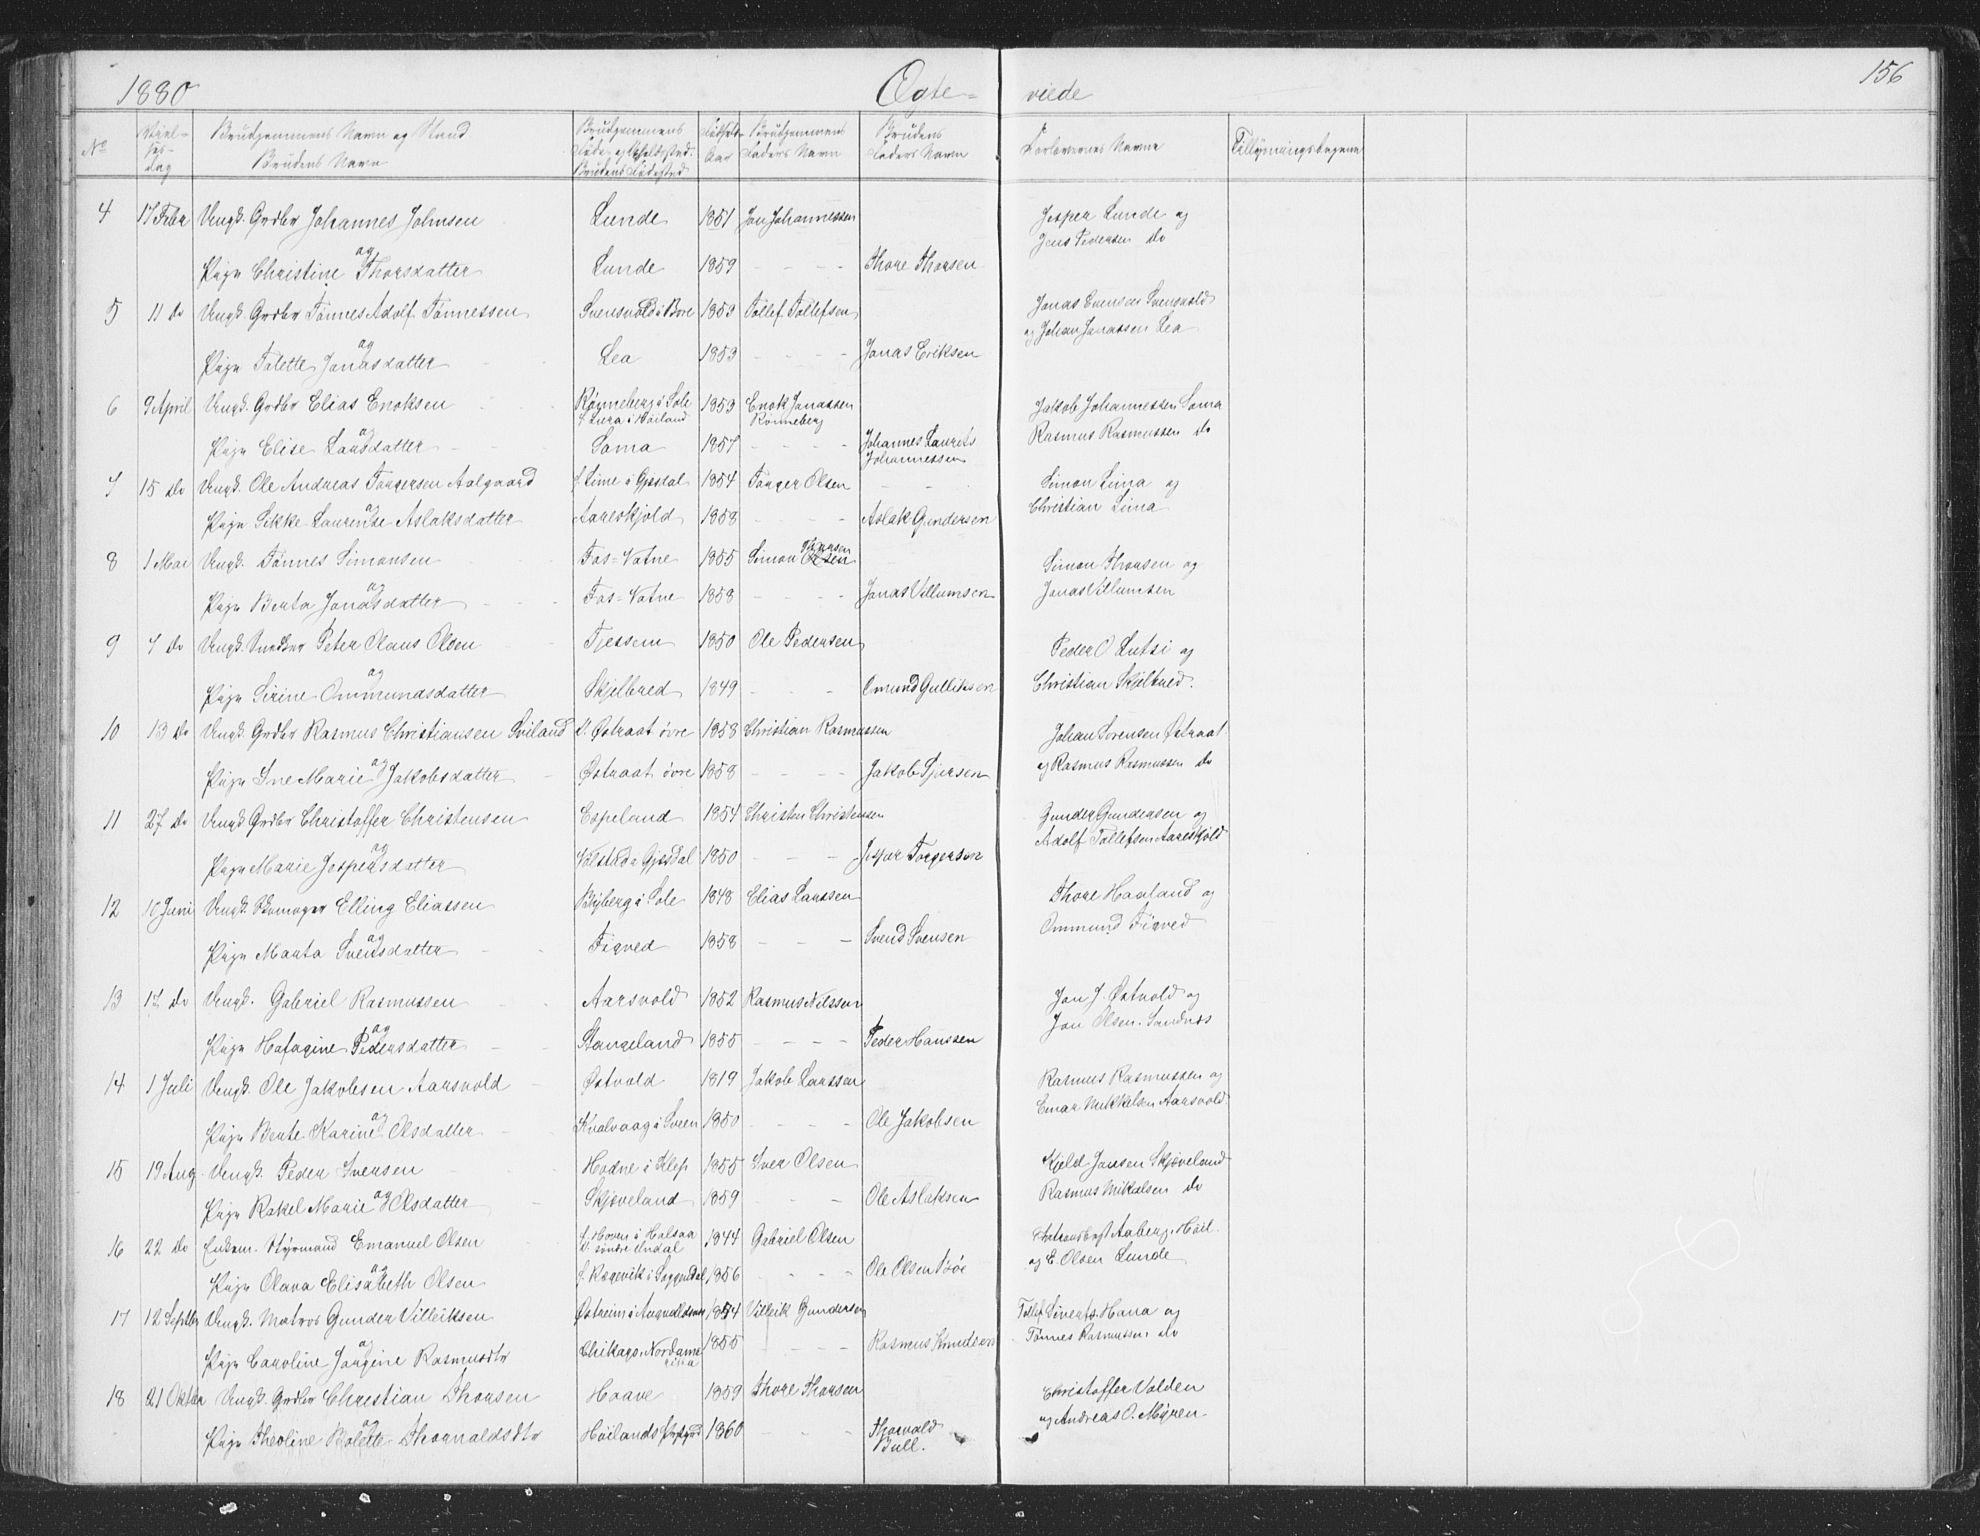 1880 Ægte- viede 156
No Viel-ses-dag Brudgommens Navn og Stand Brudens Navn Brudgommens Føde- og Opholdssted. Brudens Fødested Fødsels-Aar Brudgommens Faders Navn Brudens Faders Navn Forlovernes Navne Tillysningsdagene
4 17 Febr Ungk. Grdbr Johannes Johnsen Lunde 1851 Jon Johannessen Jesper Lunde og
og Jens Pedersen do
Pige Christine Thorsdatter Lunde 1859 - - - Thore Thorsen
5 11 do Ungk. Grdbr Tønnes Adolf Tønnessen Svensvold i Bore 1853 Tollef Tollefsen Jonas Svensen Svensvold
og og Johan Jonassen Lea
Pige Talette Jonasdatter Lea 1853 - - - Jonas Eriksen
6 9 April Ungk. Grdbr Elias Enoksen Rønneberg i Sole 1853 Enok Jonassen Jakob Johannessen Soma
f. Lura i Høiland Rønneberg
og Rasmus Rasmussen do
Pige Elise Larsdatter Soma 1857 - - - Johannes Laurits
Johannessen
7 15 do Ungk. Ole Andreas Torgersen Aalgaard f. Lime i Gjesdal 1854 Torger Olsen - - Simon Lima og
og Christian Lima
Pige Sikke Laurense Aslaksdatter Aareskjold 1858 - - - Aslak Gundersen
8 1 Mai Ungk. Tønnes Simonsen Fos-Vatne 1855 Simon Olsen Thorsen Simon Thorsen og
og
Pige Berta Jonasdatter Fos-Vatne 1858 - - - Jonas Villumsen Jonas Villumsen
9 7 do Ungk. Peter Olaus Olsen Tjessem 1850 Ole Pedersen Peder O Lutsi og
og
Pige Sirine Ommundsdatter Skjelbred 1849 - - - Omund Gulliksen Christian Skjelbred.
10 13 do Ungk. Grdbr Rasmus Christiansen Sviland Østraat øvre 1858 Christian Rasmussen Johan Sørensen Østraat
og og Rasmus Rasmussen do
Pige Ane Marie Jakobsdatter Østraat øvre 1858 - - - Jakob Sjursen
11 27 do Ungk Grdbr Christoffer Christensen Espeland 1854 Christen Christensen Gunder Gundersen og
og Adolf Tollefsen Aareskjold
Pige Marie Jespersdatter Gjesdal 1850 - - - Jesper Torgersen
12 10 Juni Ungk. Skomager Elling Eliassen Byberg i Sole 1848 Elias Larssen Thore Haaland og
og Ommund Figved
Pige Marta Svensdatter Figved 1858 - - - Svend Svensen
13 17 do Ungk. Gabriel Rasmussen Aarsvold 1852 Rasmus Nilssen Jon J. Østvold og
og Jon Olsen. Sandnes
Pige Hafagine Pedersdatter Stangeland 1855 - - - Peder Hanssen
14 1 Juli Ungk. Ole Jakobsen Aarsvold Østvold 1819 Jakob Larssen Rasmus Rasmussen og
og Einar Mikkelsen Aarsvold
Pige Berte Karine Olsdatter Kvalvaag i Sveen 1850 - - - Ole Jakobsen
15 19 Aug. Ungk. Peder Iversen Hodne i Klep 1855 Iver Olsen Kjeld Jansen Skjæveland
og
Pige Rakel Marie Olsdatter Skjæveland 1859 - - - Ole Aslaksen Rasmus Mikalsen do
16 22 do Enkem. Styrmand Emanuel Olsen f. Hoven i Halsaa 1844 Gabriel Olsen Aaberg. Høil.
søndre Undal
og og E Olsen Lunde
Pige Olava Elisabeth Olsen f. Rægevik i Soggndal 1856 - - - Ole Olsen
17 12 Septbr Ungk. Matros Gunder Villeiksen Østreim i Augvaldsnes 1854 Villeik Gundersen Tollef Siverts. Hana og
og Tønnes Rasmussen do
Pige Caroline Jorgine Rasmusdtr Chikago Nordamerika 1855 - - - Rasmus Knudsen
18 21 Oktbr Ungk. Grdbr Christian Thorsen Haave 1859 Thore Thorsen Christoffer Volden
og og Andreas O. Myren
Pige Theoline Bolette Thorvaldsdtr Høilands Prstgrd 1860 - - - Thorvald
Bull.